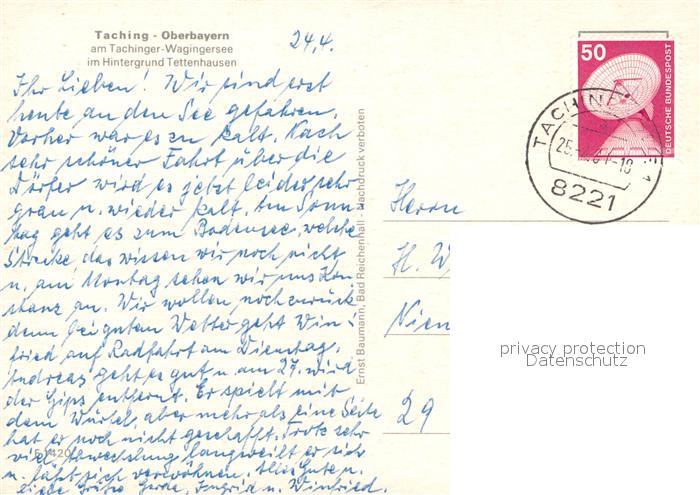 Taching - Oberbayern
am Tachinger-Wagingersee
im Hintergrund Tettenhausen
24.4.
Ihr Lieben! Wir sind erst
heute an den See gefahren.
Vorher war es zu kalt. Nach
sehr schöner Fahrt über die
Dörfer wird es jetzt leider sehr
grau u. wieder kalt. Am Sonn-
tag geht es zum Bodensee, welche
Strecke das wissen wir noch nicht
u. am Montag sehen wir uns Kon-
stanz an. Wir wollen noch zurück
denn bei gutem Wetter geht Win-
fried auf Radfahrt am Dienstag.
Andreas geht es gut u. am 27. wird
der Gips entfernt. Er spielt mit
dem Würfel, aber mehr als eine Seite
hat er noch nicht geschafft. Trotz sehr
viel Abwechslung langweilt er sich
u. läßt sich verwöhnen. Alles Gute u.
liebe Grüße Gerda, Ingrid u. Winfried.
Ernst Baumann, Bad Reichenhall - Nachdruck verboten
50
DEUTSCHE BUNDESPOST
TACHING
8221
Herrn
H. W
Nien
29
privacy protection
Datenschutz